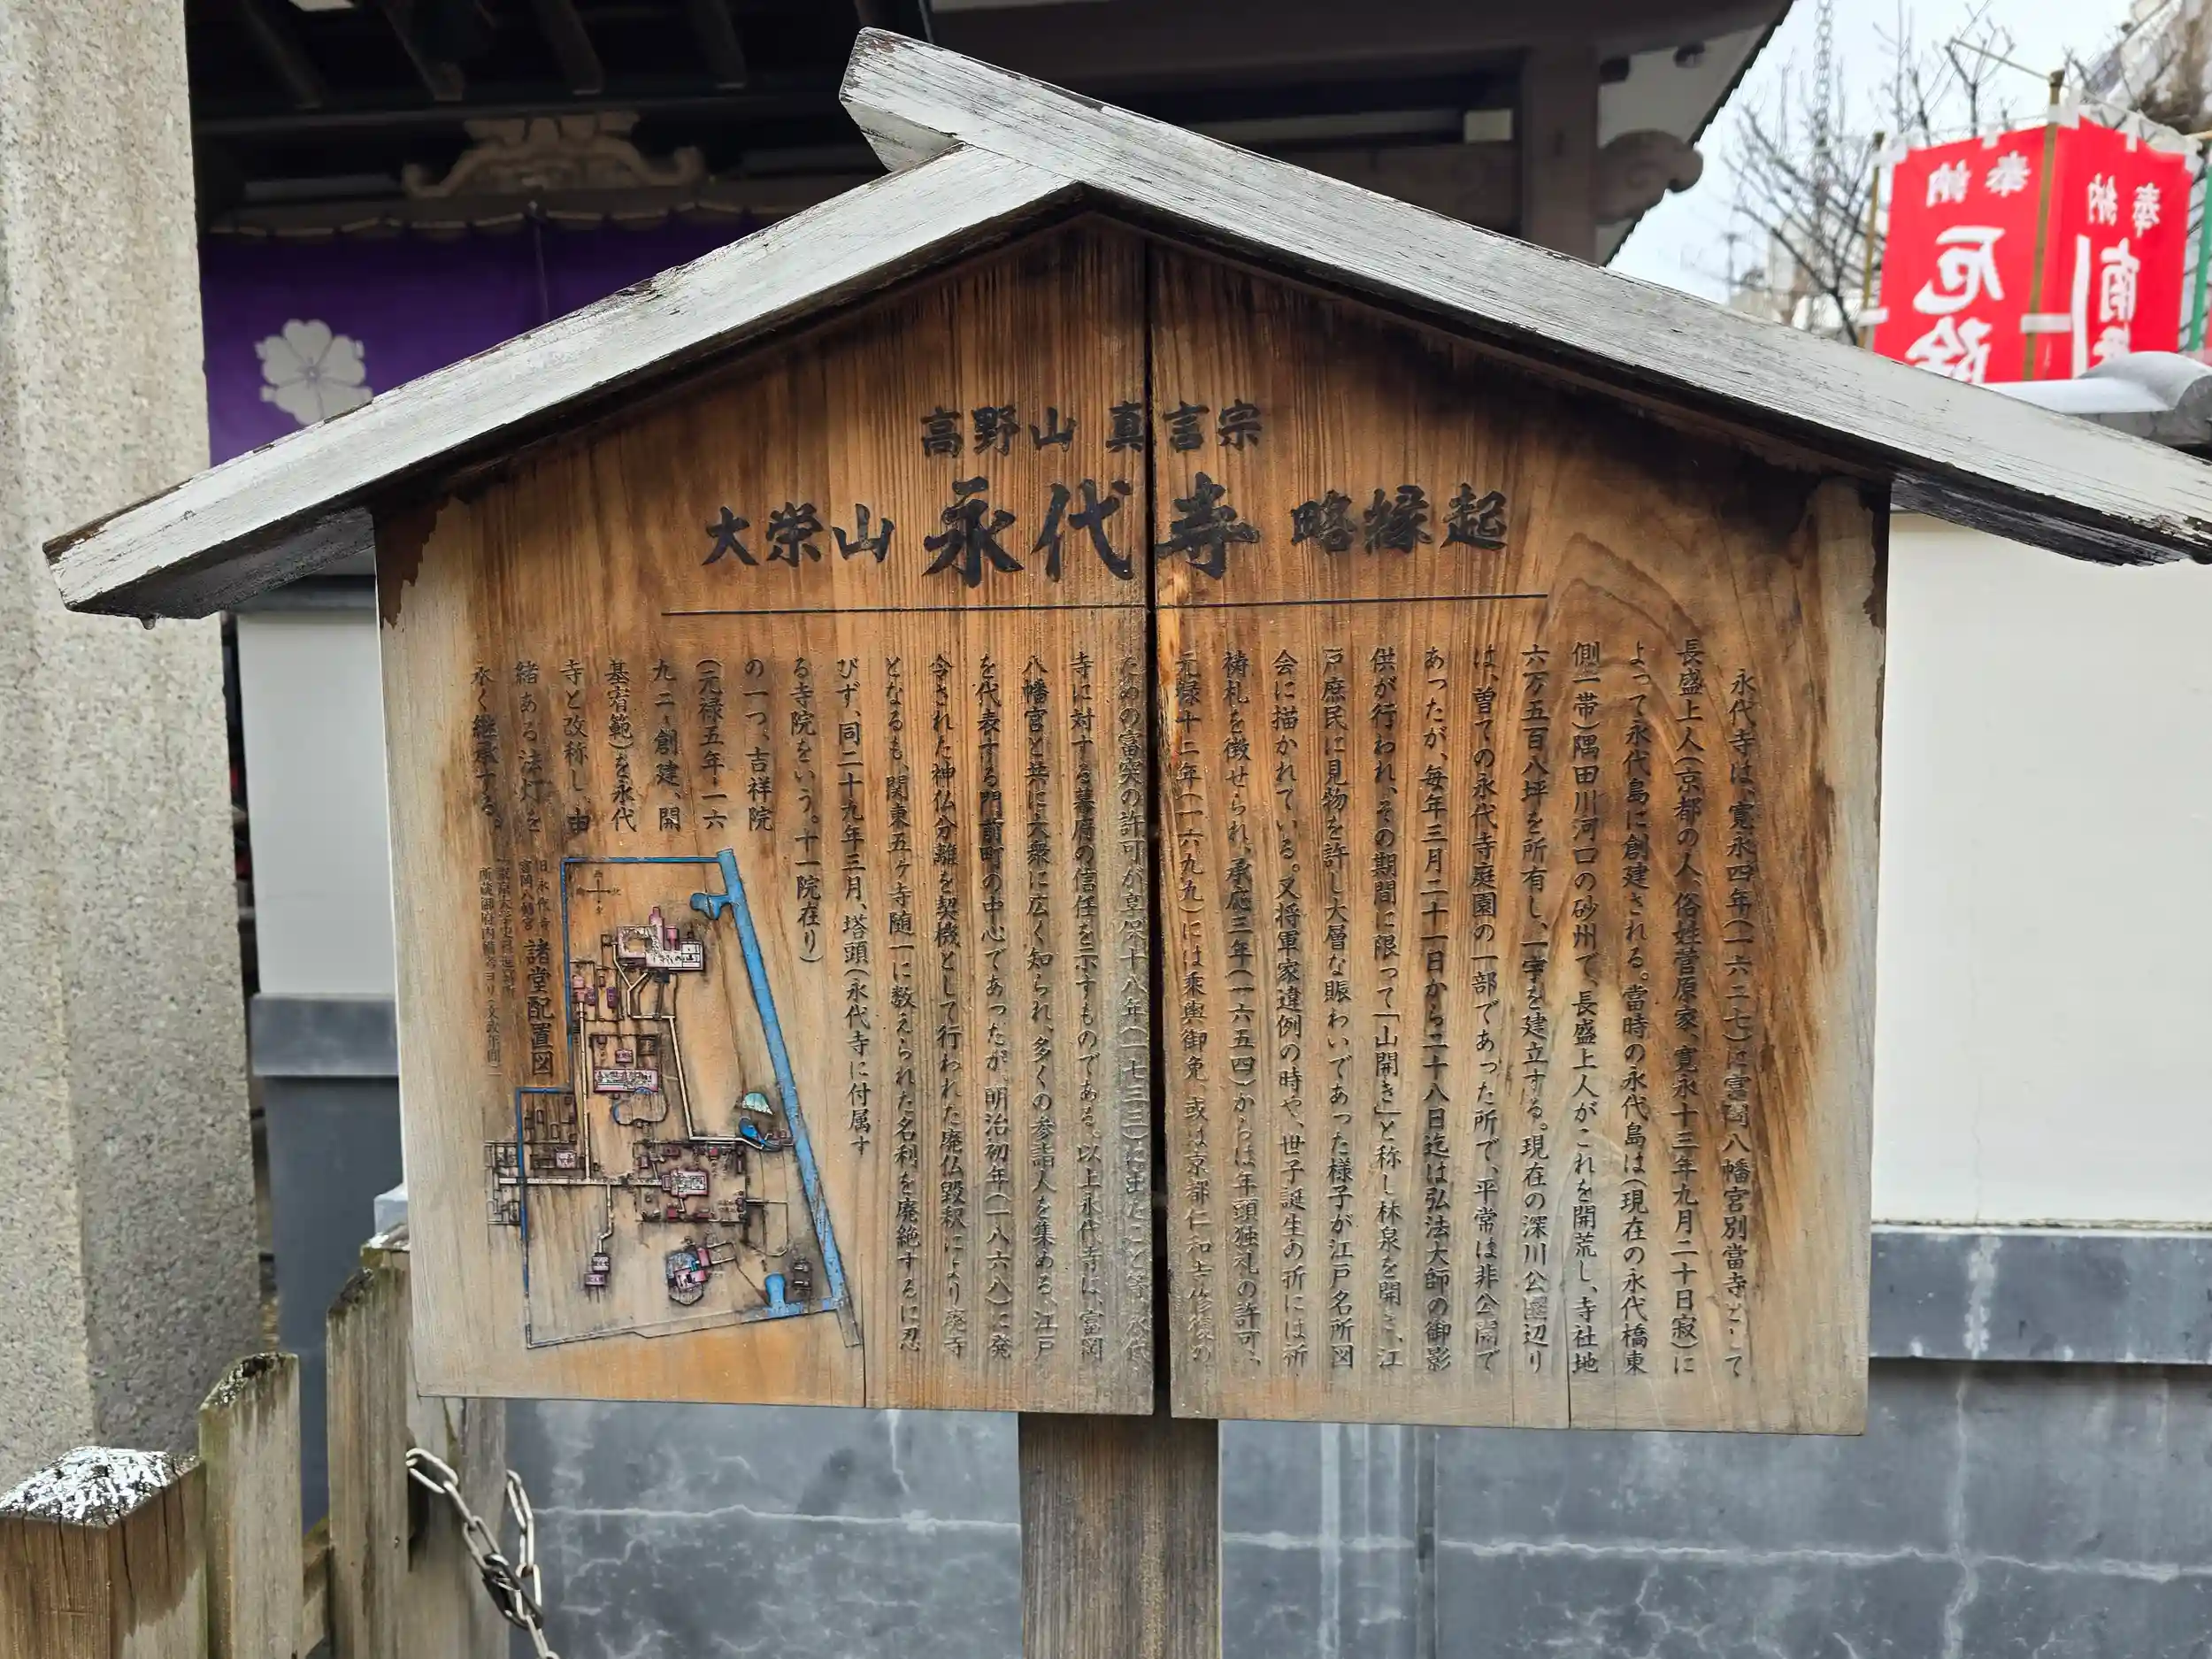 高野山 真言宗
大栄山 永代寺 略縁起
永代寺は、寛永四年(一六二七)に富岡八幡宮別當寺として
長盛上人(京都の人、俗姓菅原家、寛永十三年九月二十日寂)に
よって永代島に創建される。當時の永代島は(現在の永代橋東
側一帯)隅田川河口の砂州で、長盛上人がこれを開荒し、寺社地
六万五百八坪を所有し、一宇を建立する。現在の深川公園辺り
は、曽ての永代寺庭園の一部であった所で、平常は非公開で
あったが、毎年三月二十一日から二十八日迄は弘法大師の御影
供が行われ、その期間に限って「山開き」と称し林泉を開き、江
戸庶民に見物を許し大層な賑わいであった様子が江戸名所図
会に描かれている。又将軍家違例の時や、世子誕生の折には祈
祷札を徴せられ、承応三年(一六五四)からは年頭独礼の許可、
元禄十二年(一六九九)には乗輿御免、或は京都仁和寺修復の
ための富突の許可が享保十八年(一七三三)に出たこと等、永代
寺に対する幕府の信任を示すものである。以上永代寺は、富岡
八幡宮と共に大衆に広く知られ、多くの参詣人を集める、江戸
を代表する門前町の中心であったが、明治初年(一八六八)に発
令された神仏分離を契機として行われた廃仏毀釈により廃寺
となるも、関東五ヶ寺随一に数えられた名刹を廃絶するに忍
びず、同二十九年三月、塔頭(永代寺に付属す
る寺院をいう。十一院在り)
の一つ、吉祥院
(元禄五年・一六
九二・創建、開
基宥範)を永代
寺と改称し、由
緒ある法灯を
永く継承する。
旧永代寺
富岡八幡宮
諸堂配置図
奉納
厄除
奉納
南